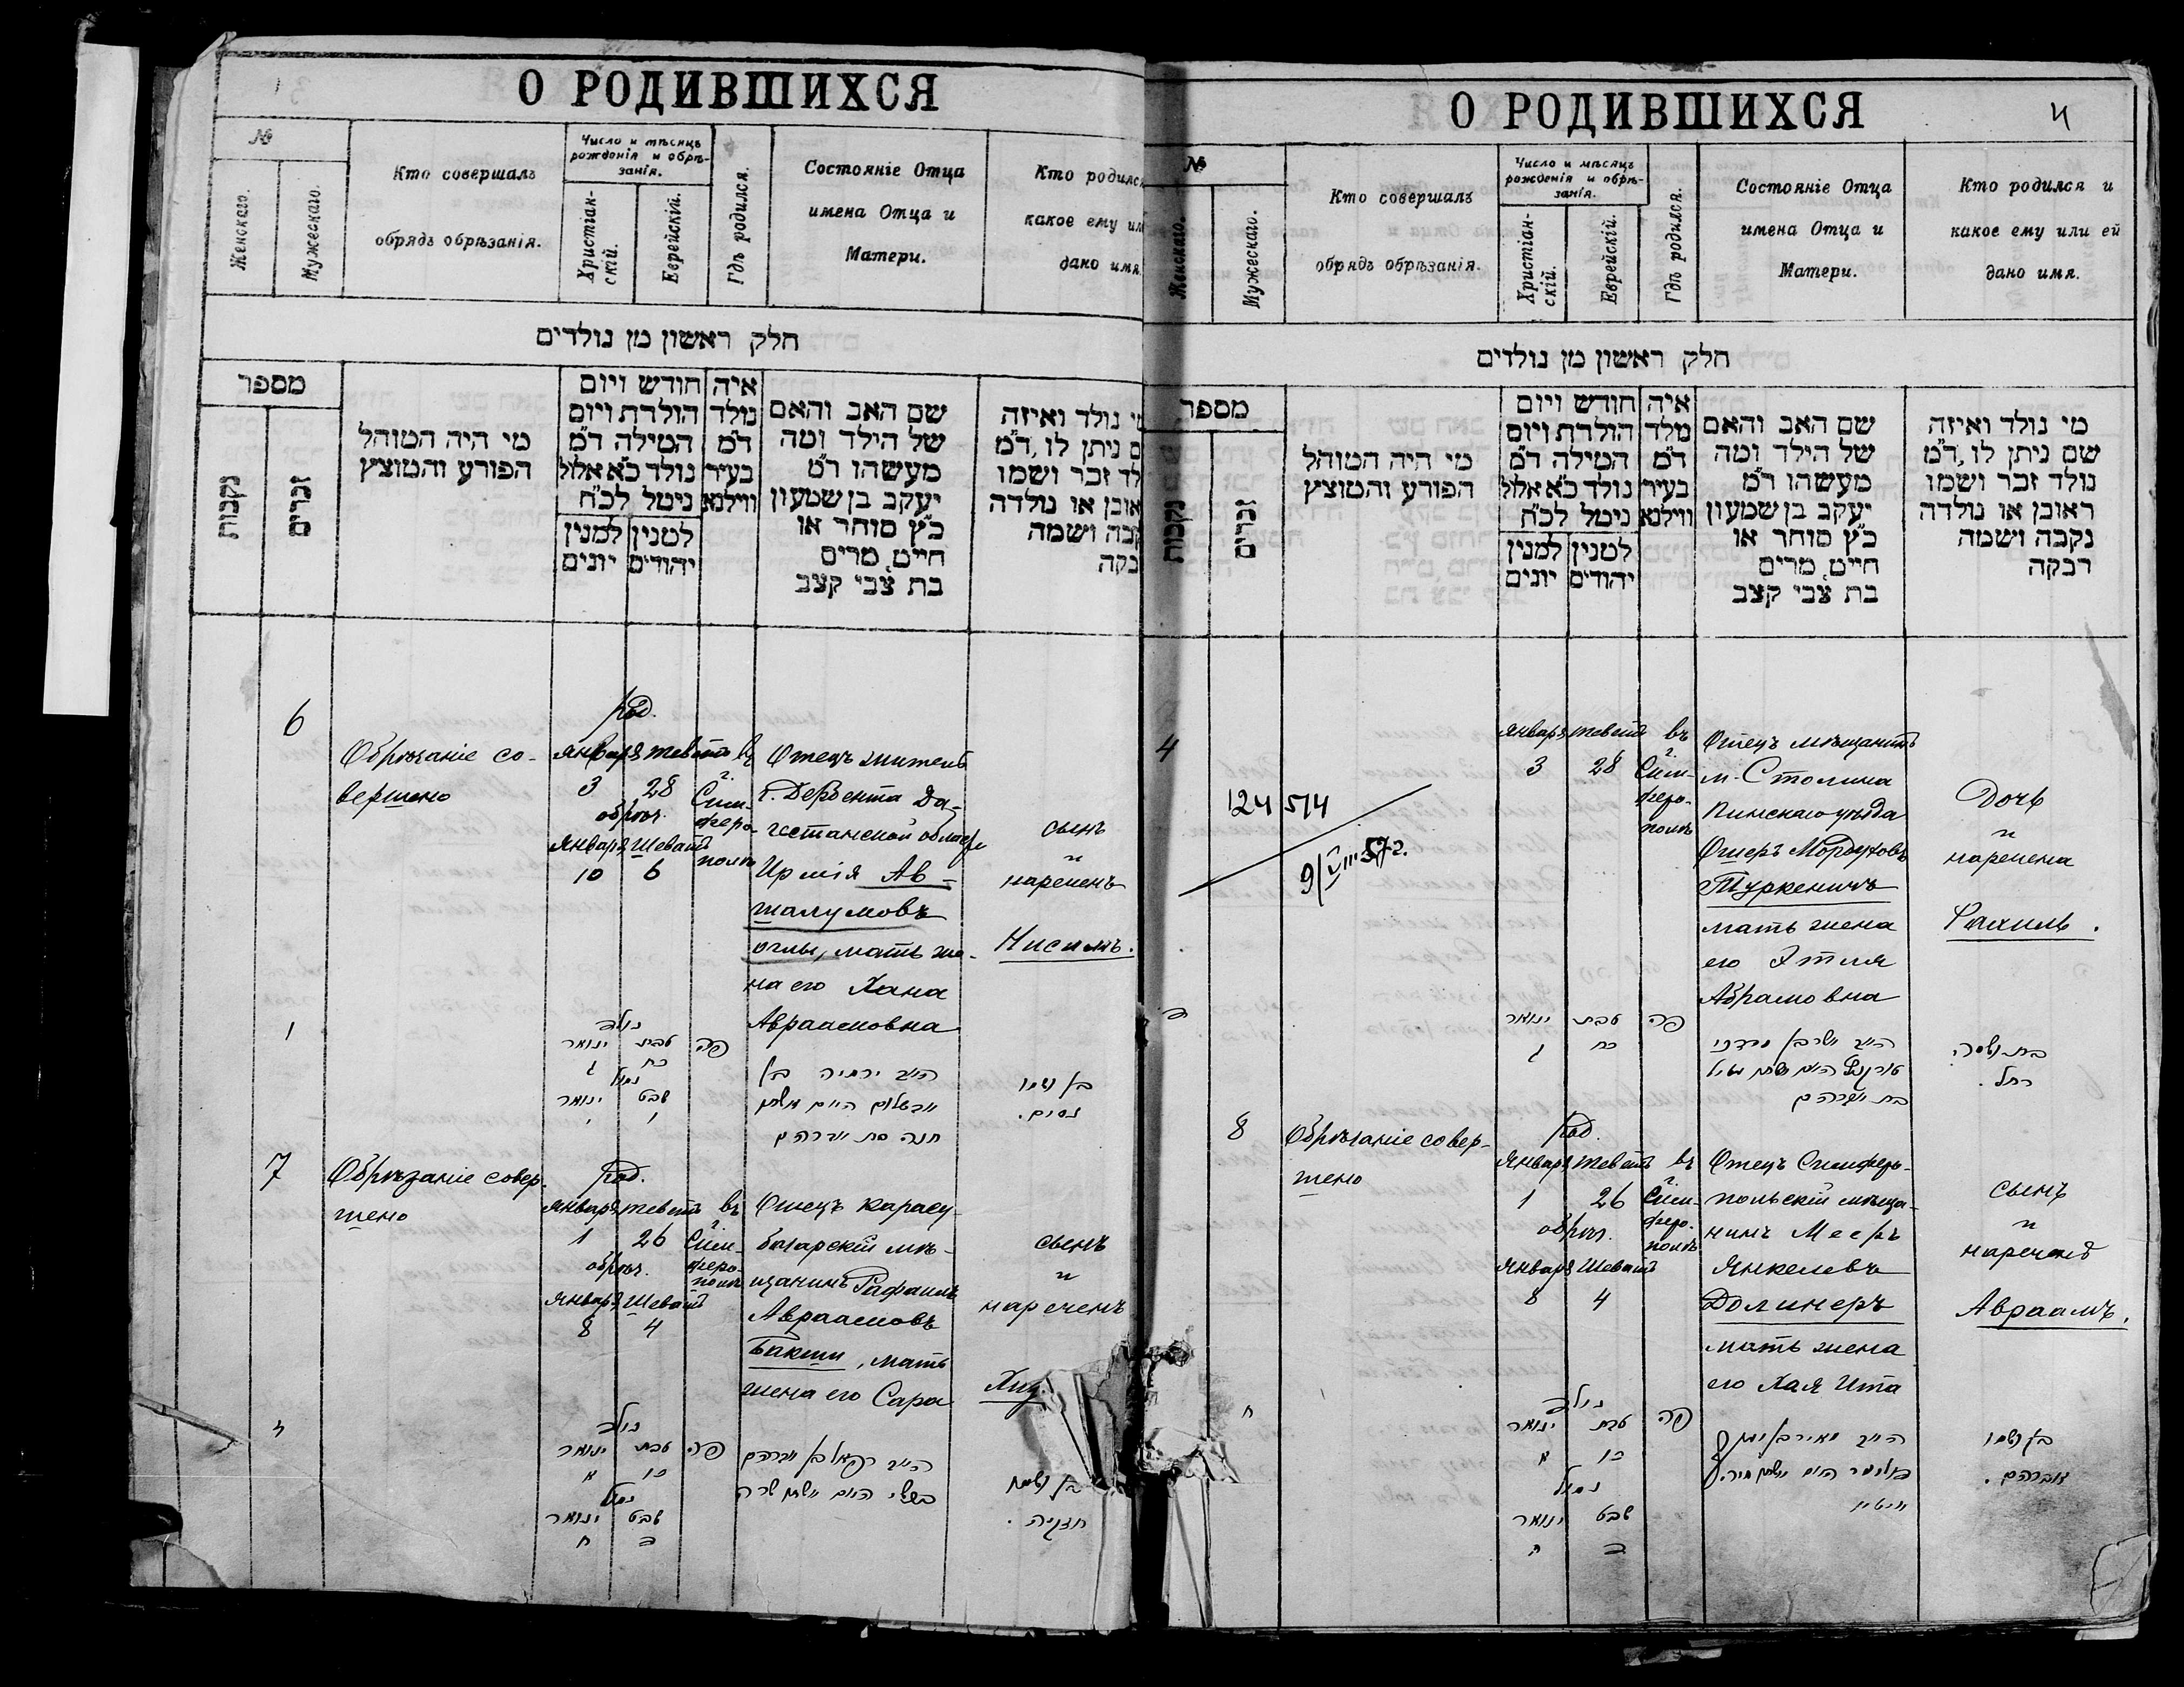 О РОДИВШИХСЯ
№
Женскаго.
Мужескаго.
Кто совершалъ
обрядъ обрѣзанія.
Число и мѣсяцъ
рожденія и обрѣ-
занія.
Христіан-
скій.
Еврейскій.
Гдѣ родился.
Состояніе Отца
имена Отца и
Матери.
Кто родился
какое ему
дано имя.
חלק ראשון מן נולדים
מספר
נקבות
זכרים
מי היה המוהל
הפורע והמוצץ
חודש ויום
הולדת ויום
המילה ד״מ
נולד כ״א אלול
ניטל לכ״ח
למנין
יהודים
למנין
יונים
איה
נולד
ד״מ
בעיר
ווילנא
שם האב והאם
של הילד ומה
מעשהו ד״מ
יעקב בן שמעון
כ״ץ סוחר או
חייט, מרים
בת צבי קצב
נולד ואיזה
ניתן לו, ד״מ
זכר ושמו
או נולדה
ושמה
6
Обрѣзаніе со-
вершено
Род.
Января Тевета
3 28
обрѣз.
Января Шевата
10 6
въ
г.
Сим-
феро-
полѣ
Отецъ житель
г. Дербента Да-
гестанской области
Ирмія Ав-
шалумовъ
оглы, мать же-
на его Хана
Авраамовна
сынъ
и
нареченъ
Нисимъ.
נולד
ינואר טבת
ג כח
נמול
ינואר שבט
י ו
פה
ה״ה ירמיה בן
חנה בת אברהם
בן ושמו
נסים.
7
Обрѣзаніе совер-
шено
Род.
Января Тевета
1 26
обрѣз.
Января Шевата
8 4
въ
г.
Сим-
феро-
полѣ
Отецъ Карасу-
базарскій мѣ-
щанинъ Рафаилъ
Авраамовъ
Бакши, мать
жена его Сара
сынъ
и
нареченъ
נולד
ינואר טבת
א כו
נמול
ינואר שבט
ח ד
פה
О РОДИВШИХСЯ
4
№
Женскаго.
Мужескаго.
Кто совершалъ
обрядъ обрѣзанія.
Число и мѣсяцъ
рожденія и обрѣ-
занія.
Христіан-
скій.
Еврейскій.
Гдѣ родился.
Состояніе Отца
имена Отца и
Матери.
Кто родился и
какое ему или ей
дано имя.
חלק ראשון מן נולדים
מספר
נקבות
זכרים
מי היה המוהל
הפורע והמוצץ
חודש ויום
הולדת ויום
המילה ד״מ
נולד כ״א אלול
ניטל לכ״ח
למנין
יהודים
למנין
יונים
איה
מלד
ד״מ
בעיר
ווילנא
שם האב והאם
של הילד ומה
מעשהו ד״מ
יעקב בן שמעון
כ״ץ סוחר או
חייט, מרים
בת צבי קצב
מי נולד ואיזה
שם ניתן לו, ד״מ
נולד זכר ושמו
ראובן או נולדה
נקבה ושמה
רבקה
4
124 514
9/VIII 57г.
Января Тевета
3 28
въ
г.
Сим-
феро-
полѣ
Отецъ мѣщанинъ
м. Столина
Пинскаго уѣзда
Ошеръ Мордуховъ
Туркеничъ
мать жена
его Этля
Абрамовна
Дочь
и
наречена
Рахиль.
ינואר טבת
ג כח
פה
בת ושמה
רחל.
8
Обрѣзаніе совер-
шено
Род.
Января Тевета
1 26
обрѣз.
Января Шевата
8 4
въ
г.
Сим-
феро-
полѣ
Отецъ Симферо-
польскій мѣща-
нинъ Мееръ
Янкелевъ
Долинеръ
мать жена
его Хая Ита
сынъ
и
нареченъ
Авраамъ.
נולד
ינואר טבת
א כו
נמול
ינואר שבט
ח ד
פה
בן ושמו
אברהם.